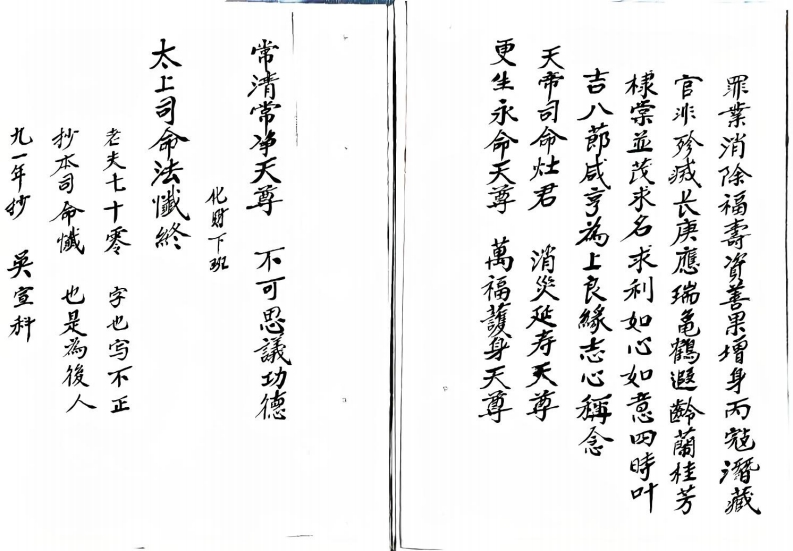 罪業消除福壽資善果增身丙寇潛藏
官非殄滅长庚應瑞龟鶴遐齡蘭桂芳
棣棠並茂求名求利如心如意四時叶
吉八節咸亨為上良緣志心稱念
天帝司命灶君 消災延寿天尊
更生永命天尊 萬福護身天尊
常清常净天尊 不可思議功德
化财下班
太上司命法懺終
老夫七十零 字也写不正
抄本司命懺 也是為後人
九一年抄 吳宣科